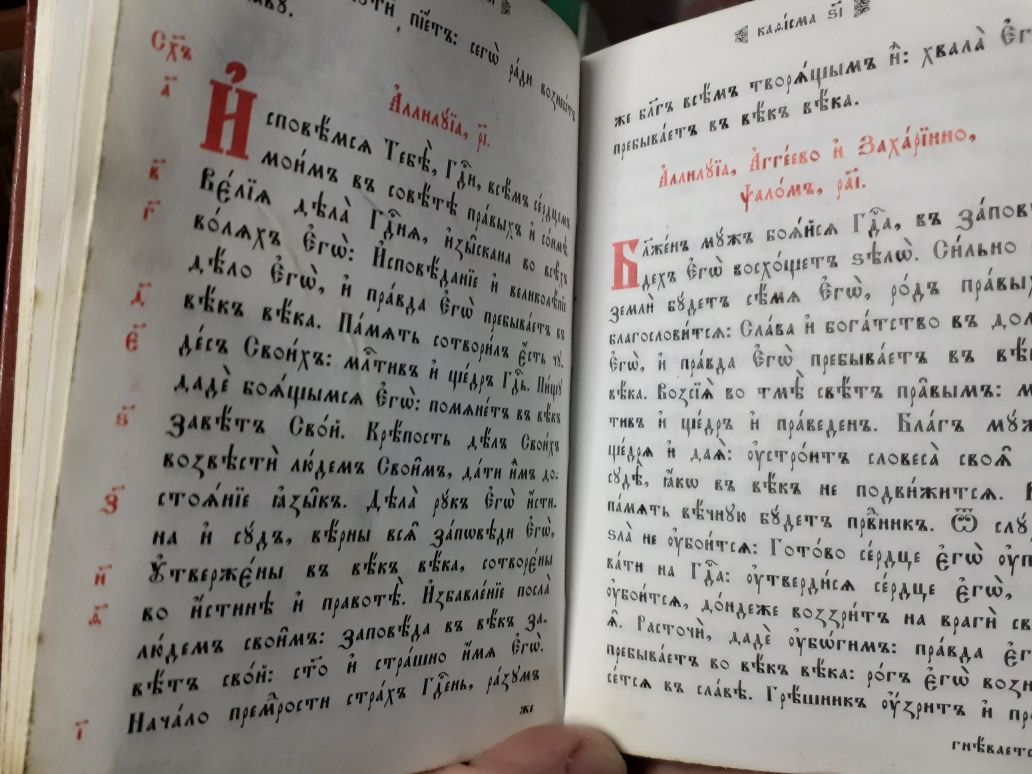 ѕ҃і
пл҄оти, піѐтъ: сегѡ̀ ра́ди вознесе́тъ
главу̀.
Сх҃ъ
Аллилу́їа, р҃і.
а҃
И҆сповѣ́мсѧ Тебѣ̀, Гд҇и, всѣ́мъ се́рдцемъ
мои́мъ въ совѣ́тѣ пра́выхъ и҆ со́нмѣ.
в҃
Ве́лїѧ дѣла̀ Гд҇нѧ, и҆зы́скана во всѣ́хъ
г҃
во́лѧхъ Є҆гѡ̀: И҆сповѣ́данїе и҆ великолѣ́пїе
дѣ́ло Є҆гѡ̀, и҆ пра́вда Є҆гѡ̀ пребыва́етъ въ
д҃
вѣ́къ вѣ́ка. Па́мѧть сотвори́лъ є҆́сть чꙋ-
є҃
де́съ Свои́хъ: мл҇тивъ и҆ ще́дръ Гд҇ь. Пи́щꙋ
дадѐ боѧ́щымсѧ Є҆гѡ̀: помѧне́тъ въ вѣ́къ
ѕ҃
завѣ́тъ Сво́й. Крѣ́пость дѣ́лъ Свои́хъ
возвѣстѝ лю́демъ Свои̑мъ, да́ти и҆̀мъ до-
з҃
стоѧ́нїе ꙗ҆зы̑къ. Дѣла̀ рꙋ́къ Є҆гѡ̀ и҆́сти-
на и҆ сꙋ́дъ, вѣ́рны всѧ̑ за́пѡвѣди Є҆гѡ̀,
и҃
Оу҆тверже́ны въ вѣ́къ вѣ́ка, сотворє́ны
д҃
во и҆́стинѣ и҆ правотѣ̀. И҆збавле́нїе посла̀
лю́демъ свои̑мъ: заповѣ́да въ вѣ́къ за-
вѣ́тъ сво́й: ст҃о и҆ стра́шно и҆́мѧ Є҆гѡ̀.
і҃
Нача́ло премⷣрости стра́хъ Гд҇ень, ра́зꙋмъ
же
каѳі́сма ѕ҃і
же бл҃гъ всѣ́мъ творѧ́щымъ и҆̀: хвала̀ Є҆г
пребыва́етъ въ вѣ́къ вѣ́ка.
Аллилу́їа, А҆гге́ево и҆ Заха́рїинно,
ѱало́мъ, ра҃і.
Бл҃же́нъ мꙋ́жъ боѧ́йсѧ Гд҇а, въ за́повѣ
дехъ Є҆гѡ̀ восхо́щетъ ѕѣлѡ̀. Си́льно
землѝ бꙋ́детъ сѣ́мѧ Є҆гѡ̀, ро́дъ пра́выхъ
благослови́тсѧ: Сла́ва и҆ бога́тство въ дом
Є҆гѡ̀, и҆ пра́вда Є҆гѡ̀ пребыва́етъ въ вѣ́к
вѣ́ка. Возсїѧ̀ во тмѣ̀ свѣ́тъ пра̑вымъ: м
тивъ и҆ ще́дръ и҆ пра́веденъ. Бла́гъ мꙋ́ж
ще́дрѧ и҆ даѧ̀: оу҆стро́итъ словеса̀ своѧ̑
сꙋдѣ̀, ꙗ҆́кѡ въ вѣ́къ не подви́житсѧ. В
па́мѧть вѣ́чнꙋю бꙋ́детъ првⷣникъ. Ѿ слꙋ
ѕла̀ не оу҆бои́тсѧ: Гото́во се́рдце є҆гѡ̀ оу҆п
ва́ти на Гд҇а: оу҆тверди́сѧ се́рдце є҆гѡ̀,
оу҆бои́тсѧ, до́ндеже воззри́тъ на врагѝ св
ѧ҆̀. Расточѝ, дадѐ оу҆бѡ́гимъ: пра́вда є҆г
пребыва́етъ во вѣ́къ вѣ́ка: ро́гъ є҆гѡ̀ возн
се́тсѧ въ сла́вѣ. Грѣ́шникъ оу҆́зритъ и҆ пр
гнѣ́ваетс